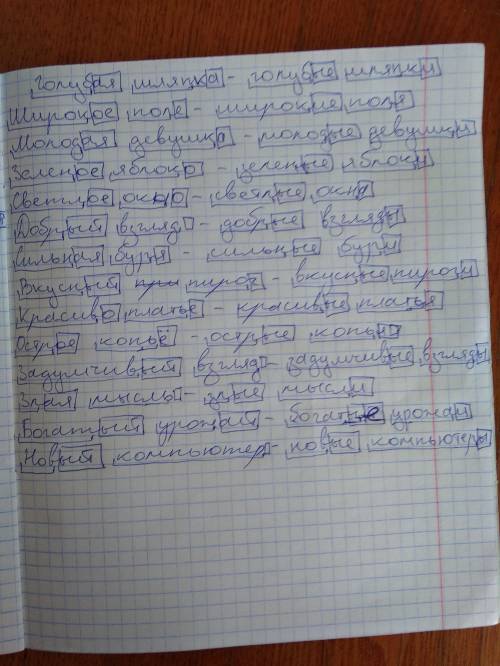 Голубая шляпка - голубые шляпки
Широкое поле - широкие поля
Молодая девушка - молодые девушки
Зеленое яблоко - зеленые яблоки
Светлое окно - светлые окна
Добрый взгляд - добрые взгляды
Сильная буря - сильные бури
Вкусный пирог - вкусные пироги
Красиво платье - красивые платья
Острое копьё - острые копья
Задумчивый взгляд - задумчивые взгляды
Злая мысль - злые мысли
Богатый урожай - богатые урожаи
Новый компьютер - новые компьютеры